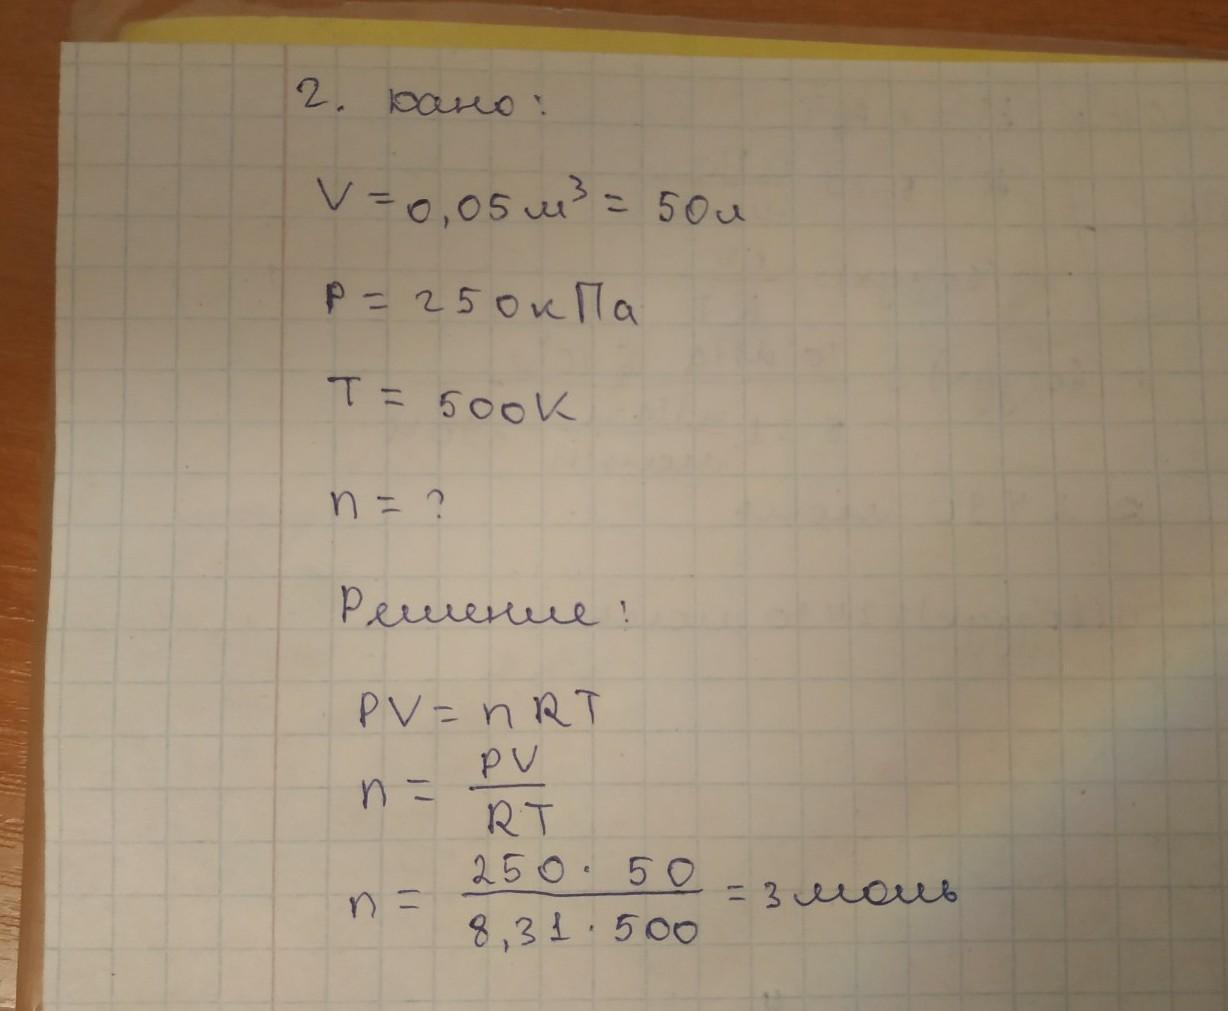 2. Дано:
V = 0,05 м³ = 50л
P = 250кПа
T = 500K
n = ?
Решение:
PV = nRT
n = PV / RT
n = 250 · 50 / 8,31 · 500 = 3 моль